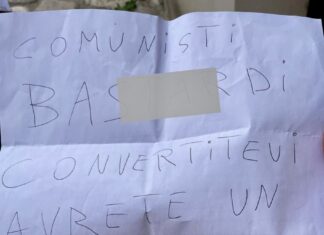 COMUNISTI
BASTARDI
CONVERTITEVI
AVRETE UN